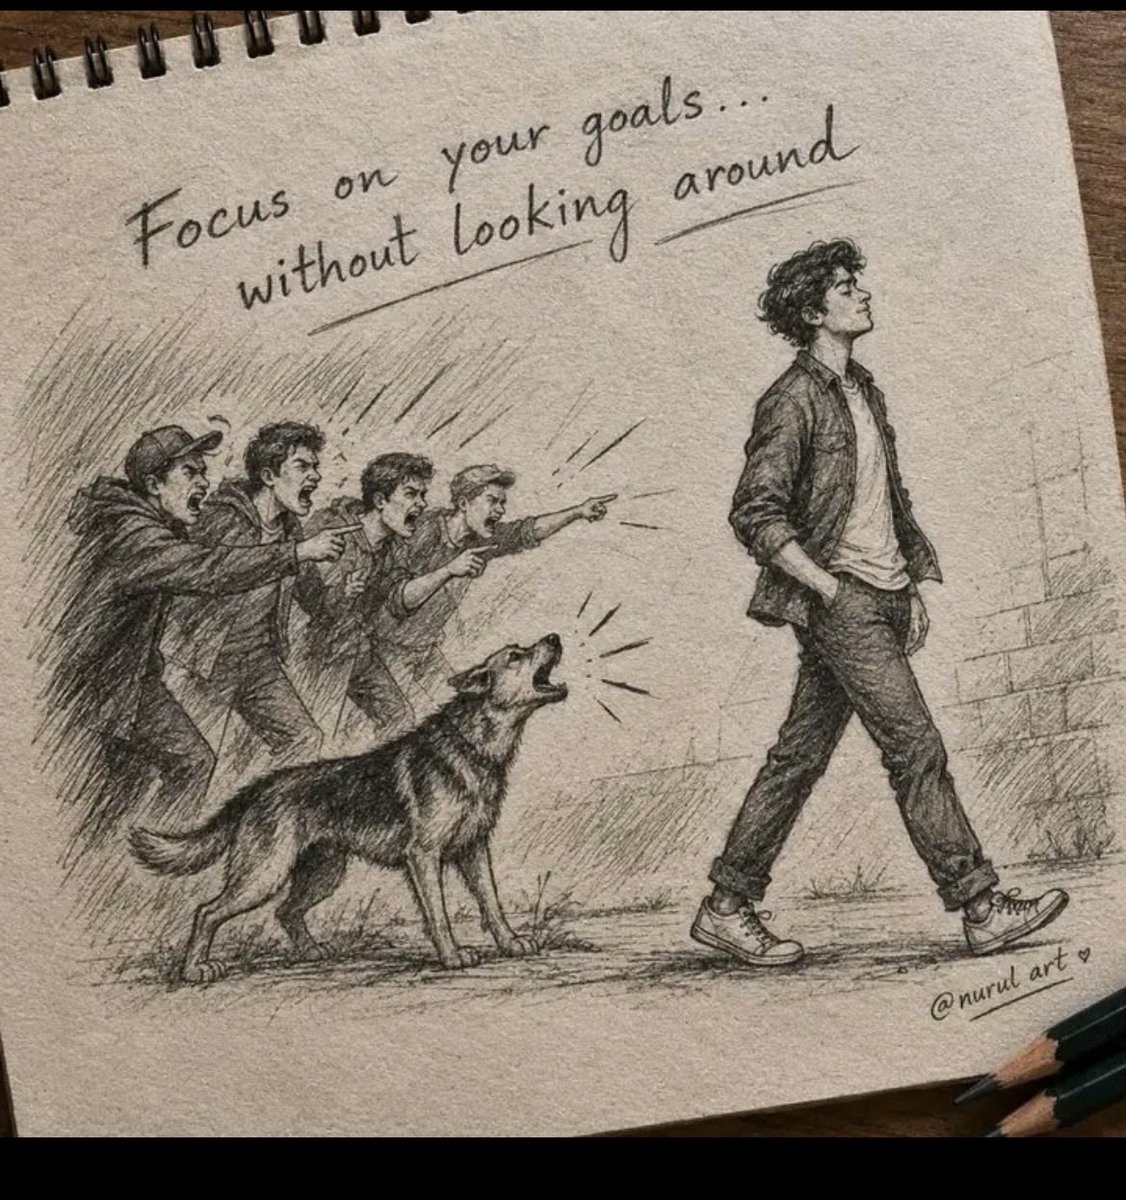 Focus on your goals...
without looking around
@nurul art ♡